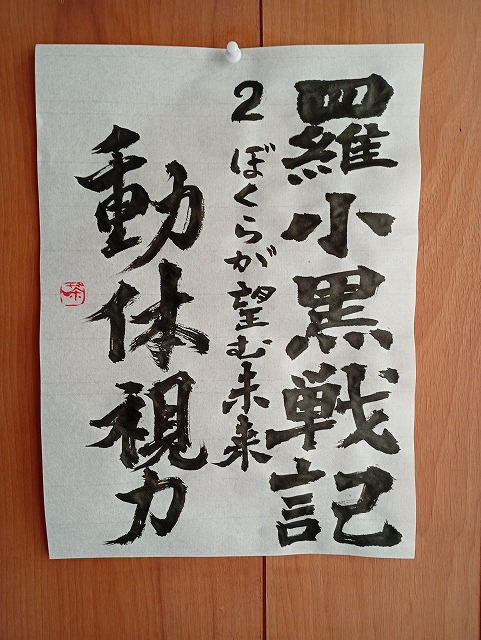 羅小黒戦記
2 ぼくらが望む未来
動体視力